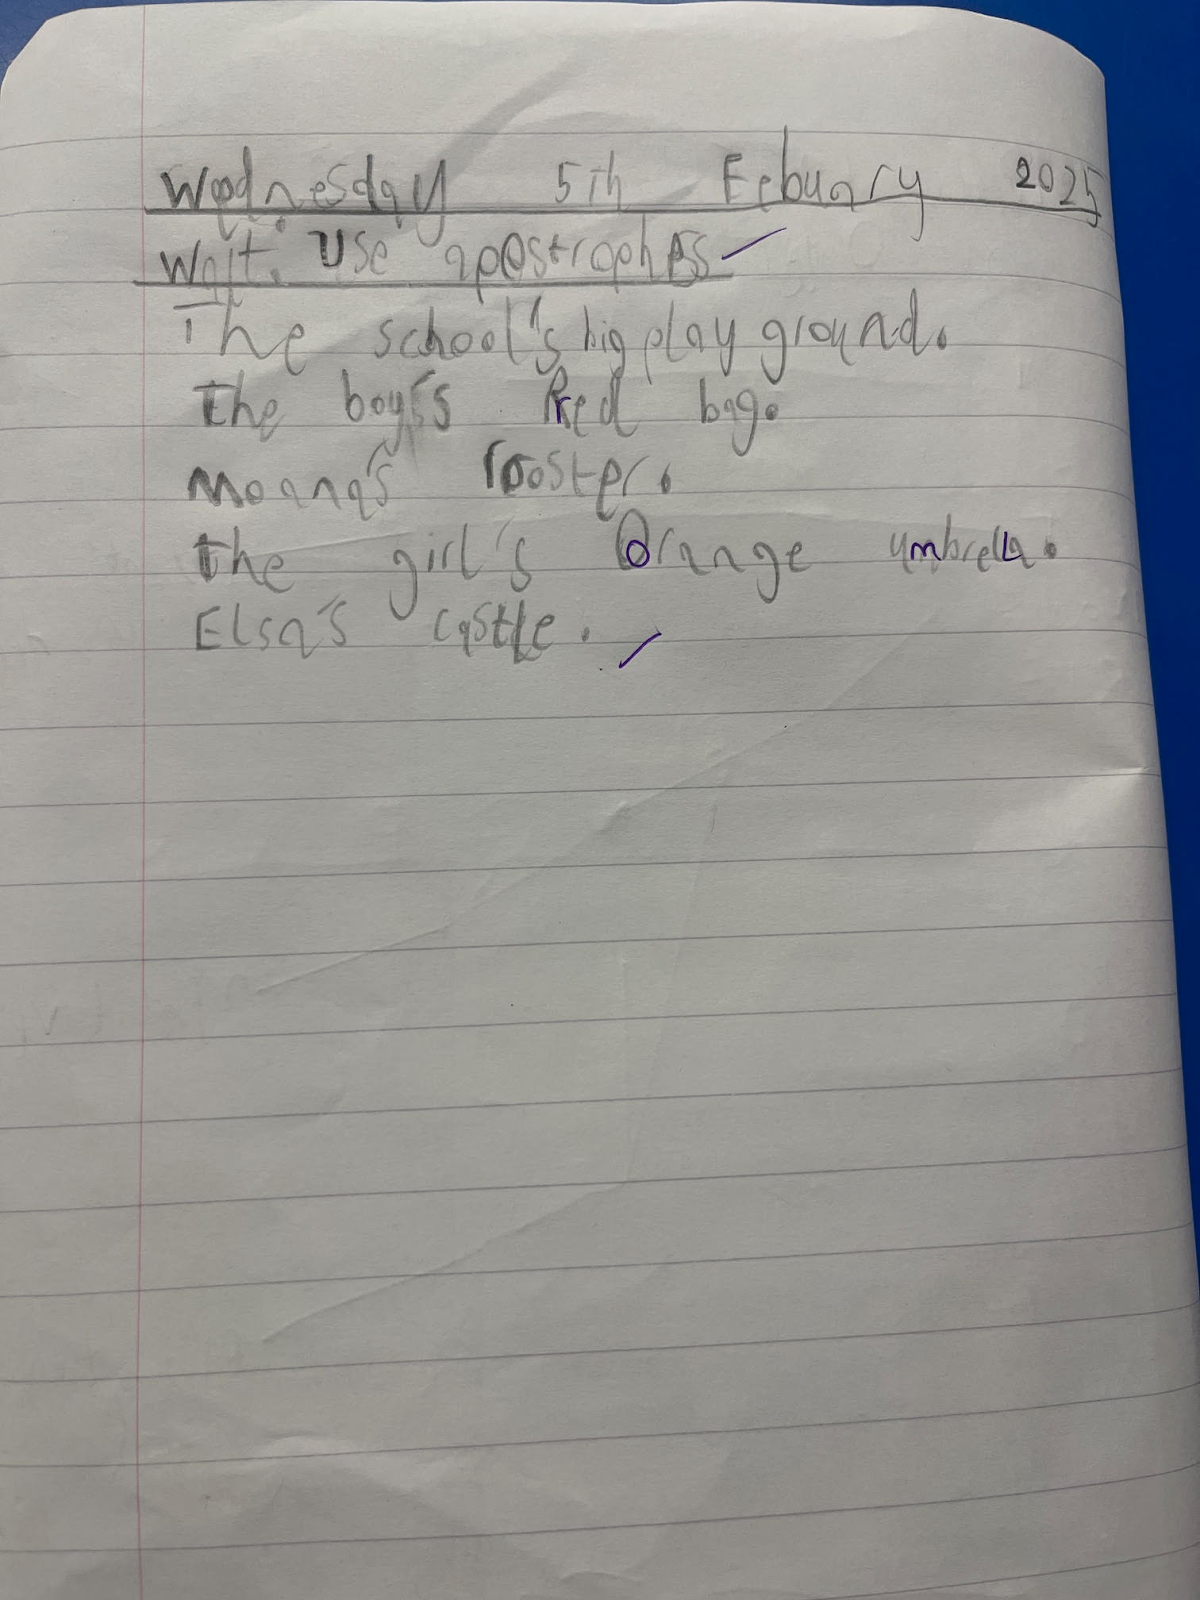 Wednesday 5th Febuary 2025
Walt: Use apostrophes
The school's big play ground.
The boy's red bag.
Moana's rooster.
The girl's orange umbrella.
Elsa's castle.